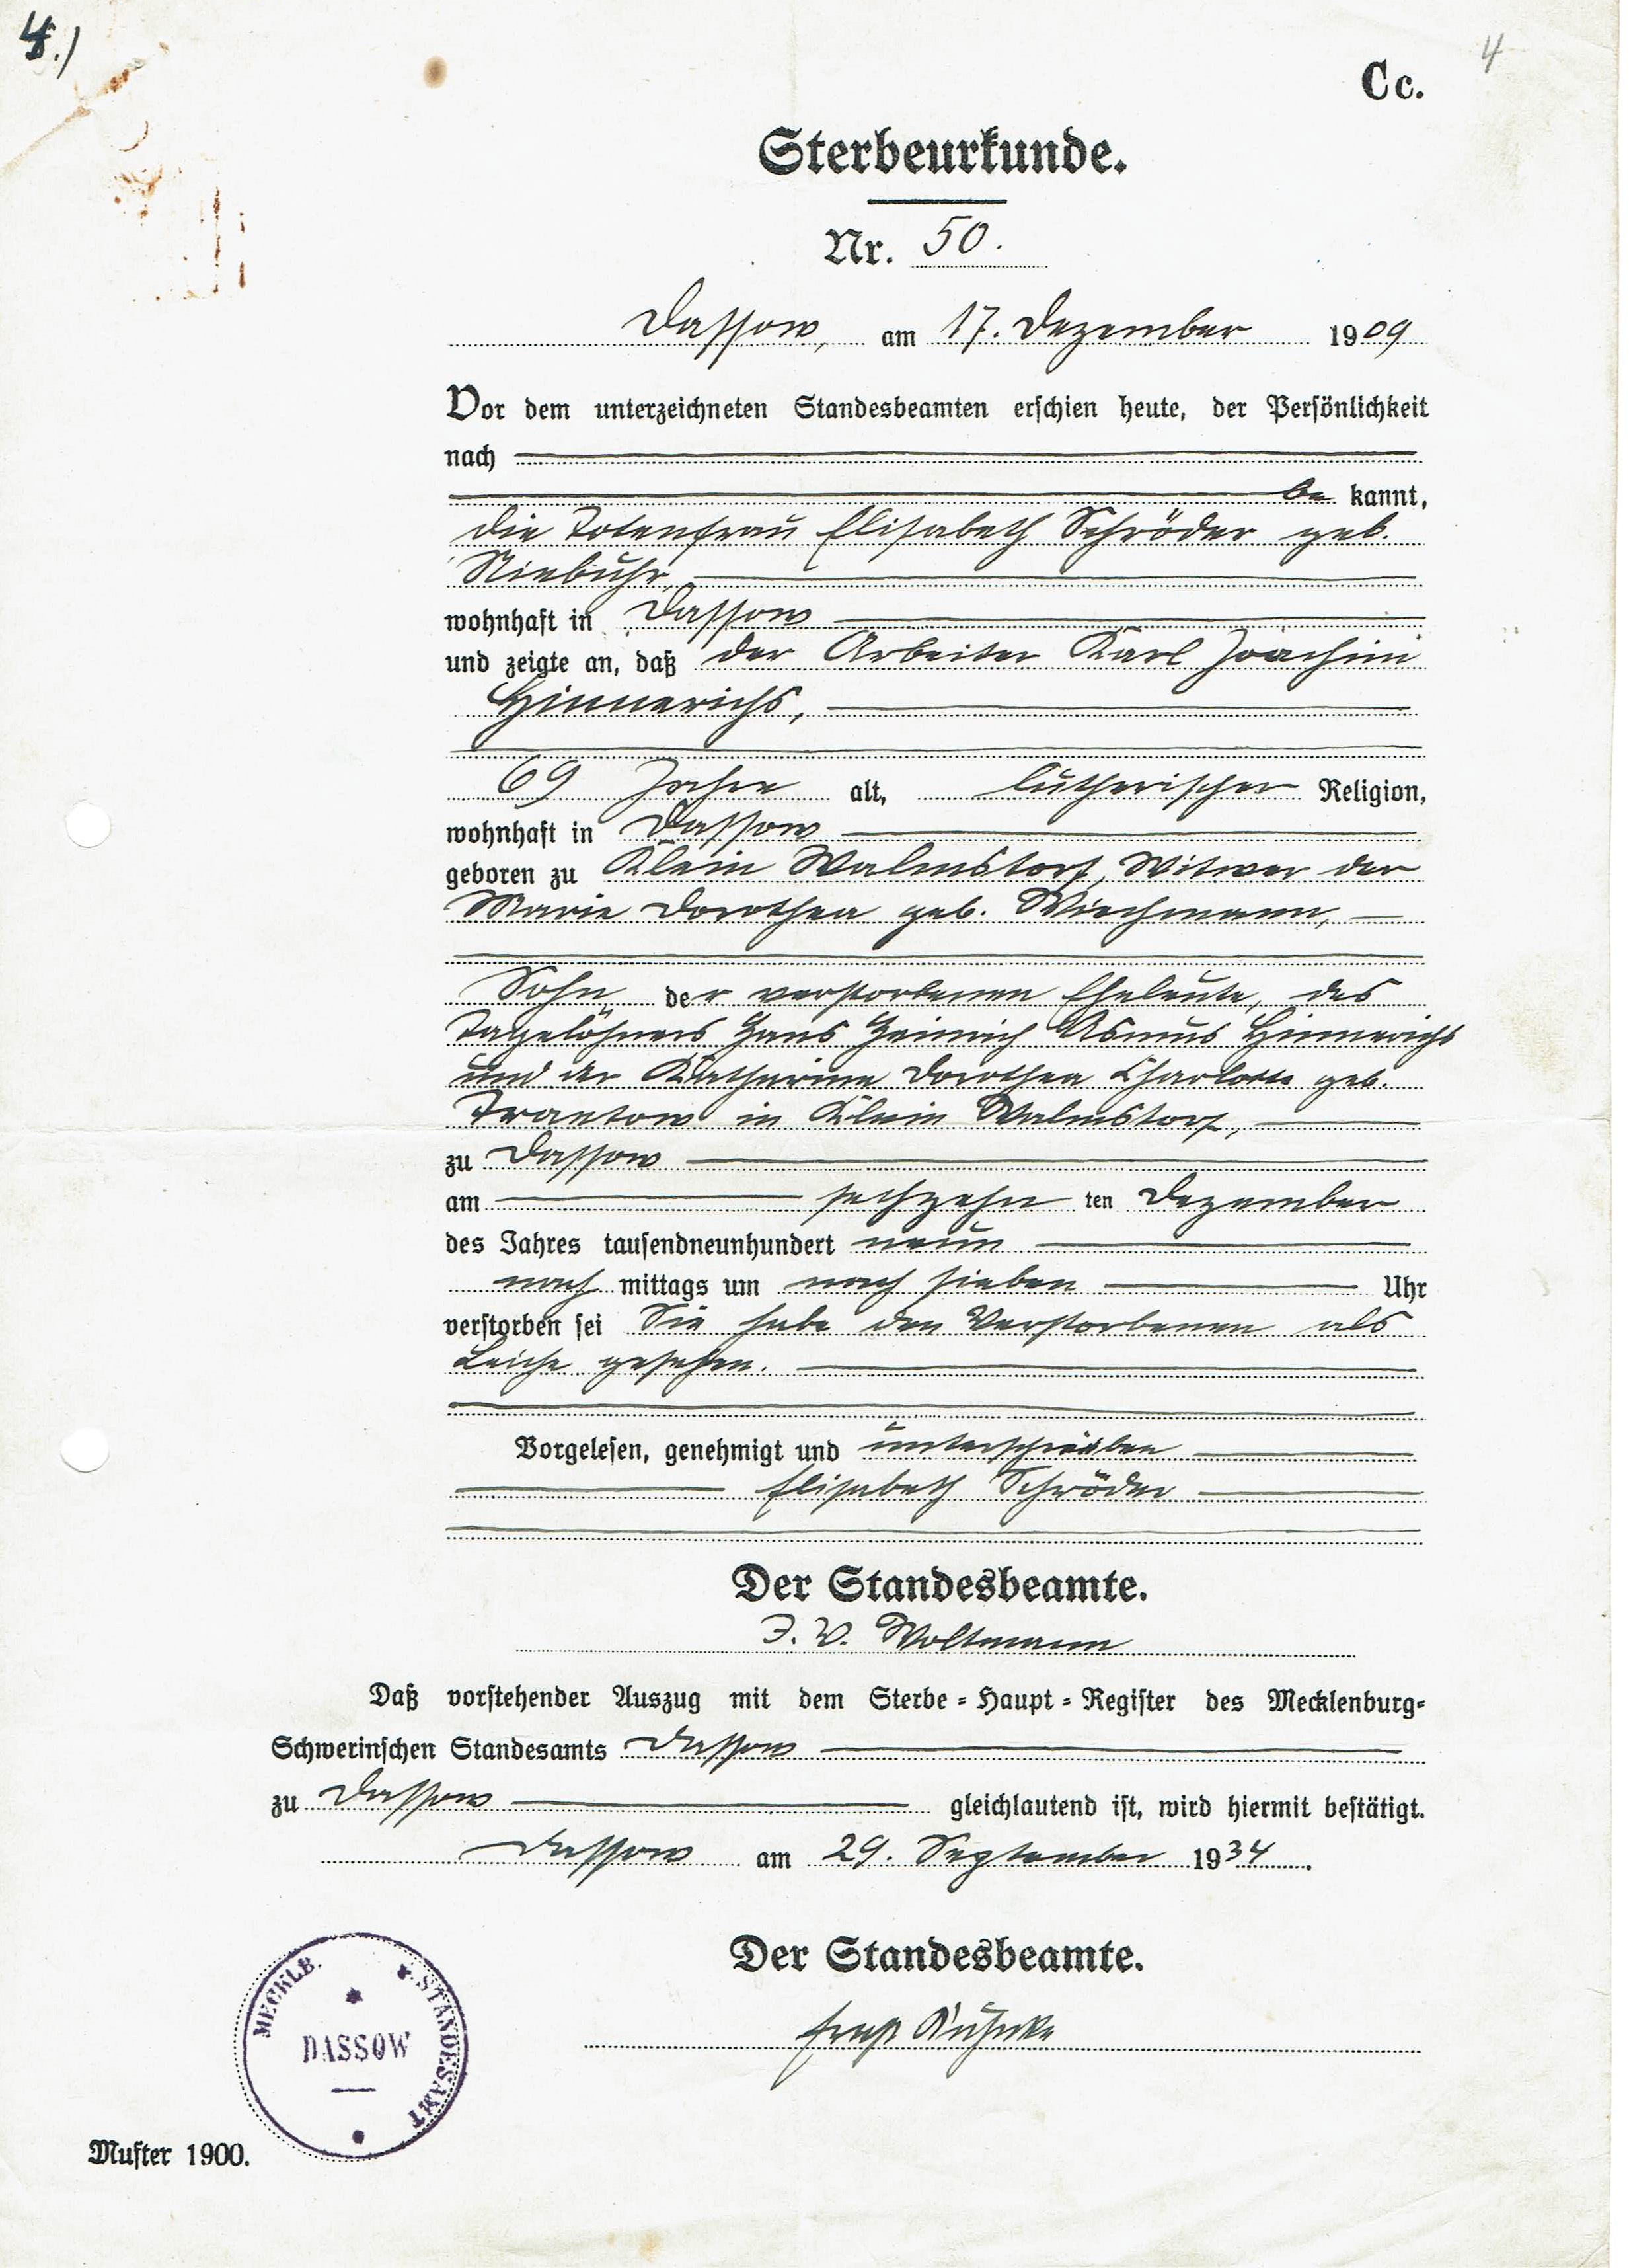 4.)
4
Cc.
Sterbeurkunde.
Nr. 50.
Dassow, am 17. Dezember 1909
Vor dem unterzeichneten Standesbeamten erschien heute, der Persönlichkeit
nach
be kannt,
die Totenfrau Elisabeth Schröder geb.
Niebuhr,
wohnhaft in Dassow
und zeigte an, daß der Arbeiter Karl Joachim
Hinnerichs,
69 Jahre alt, lutherischer Religion,
wohnhaft in Dassow
geboren zu Klein Walmstorf, Witwer der
Marie Dorothea geb. Wiechmann,
Sohn der verstorbenen Eheleute, des
Tagelöhners Hans Heinrich Asmus Hinnerichs
und der Katharina Dorothea Charlotte geb.
Trantow in Klein Walmstorf,
zu Dassow
am sechzehn ten Dezember
des Jahres tausendneunhundert neun
nach mittags um nach sieben Uhr
verstorben sei Sie habe den Verstorbenen als
Leiche gesehen.
Vorgelesen, genehmigt und unterschrieben
Elisabeth Schröder
Der Standesbeamte.
J. V. Woltmann
Daß vorstehender Auszug mit dem Sterbe-Haupt-Register des Mecklenburg-
Schwerinschen Standesamts Dassow
zu Dassow gleichlautend ist, wird hiermit bestätigt.
Dassow am 29. September 1934.
Der Standesbeamte.
MECKLB. STANDESAMT
DASSOW
Muster 1900.